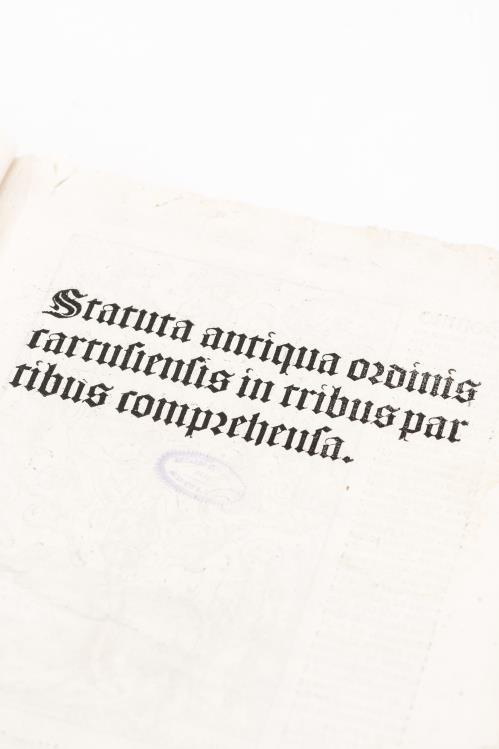 Statuta antiqua ordinis
cartusiensis in tribus par
tibus comprehensa.